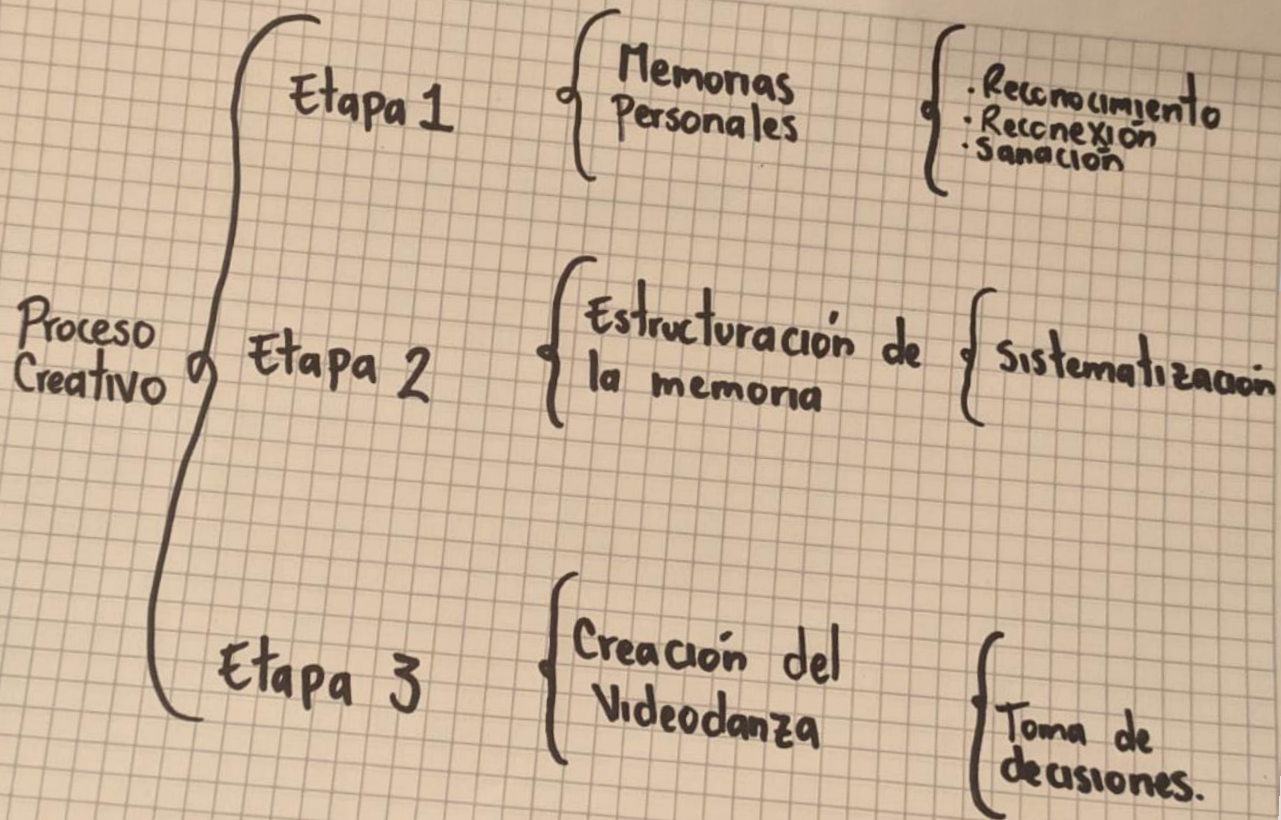 Proceso
Creativo
Etapa 1
Memorias
Personales
· Reconocimiento
· Reconexión
· Sanación
Etapa 2
Estructuración de
la memoria
Sistematización
Etapa 3
Creación del
Videodanza
Toma de
decisiones.